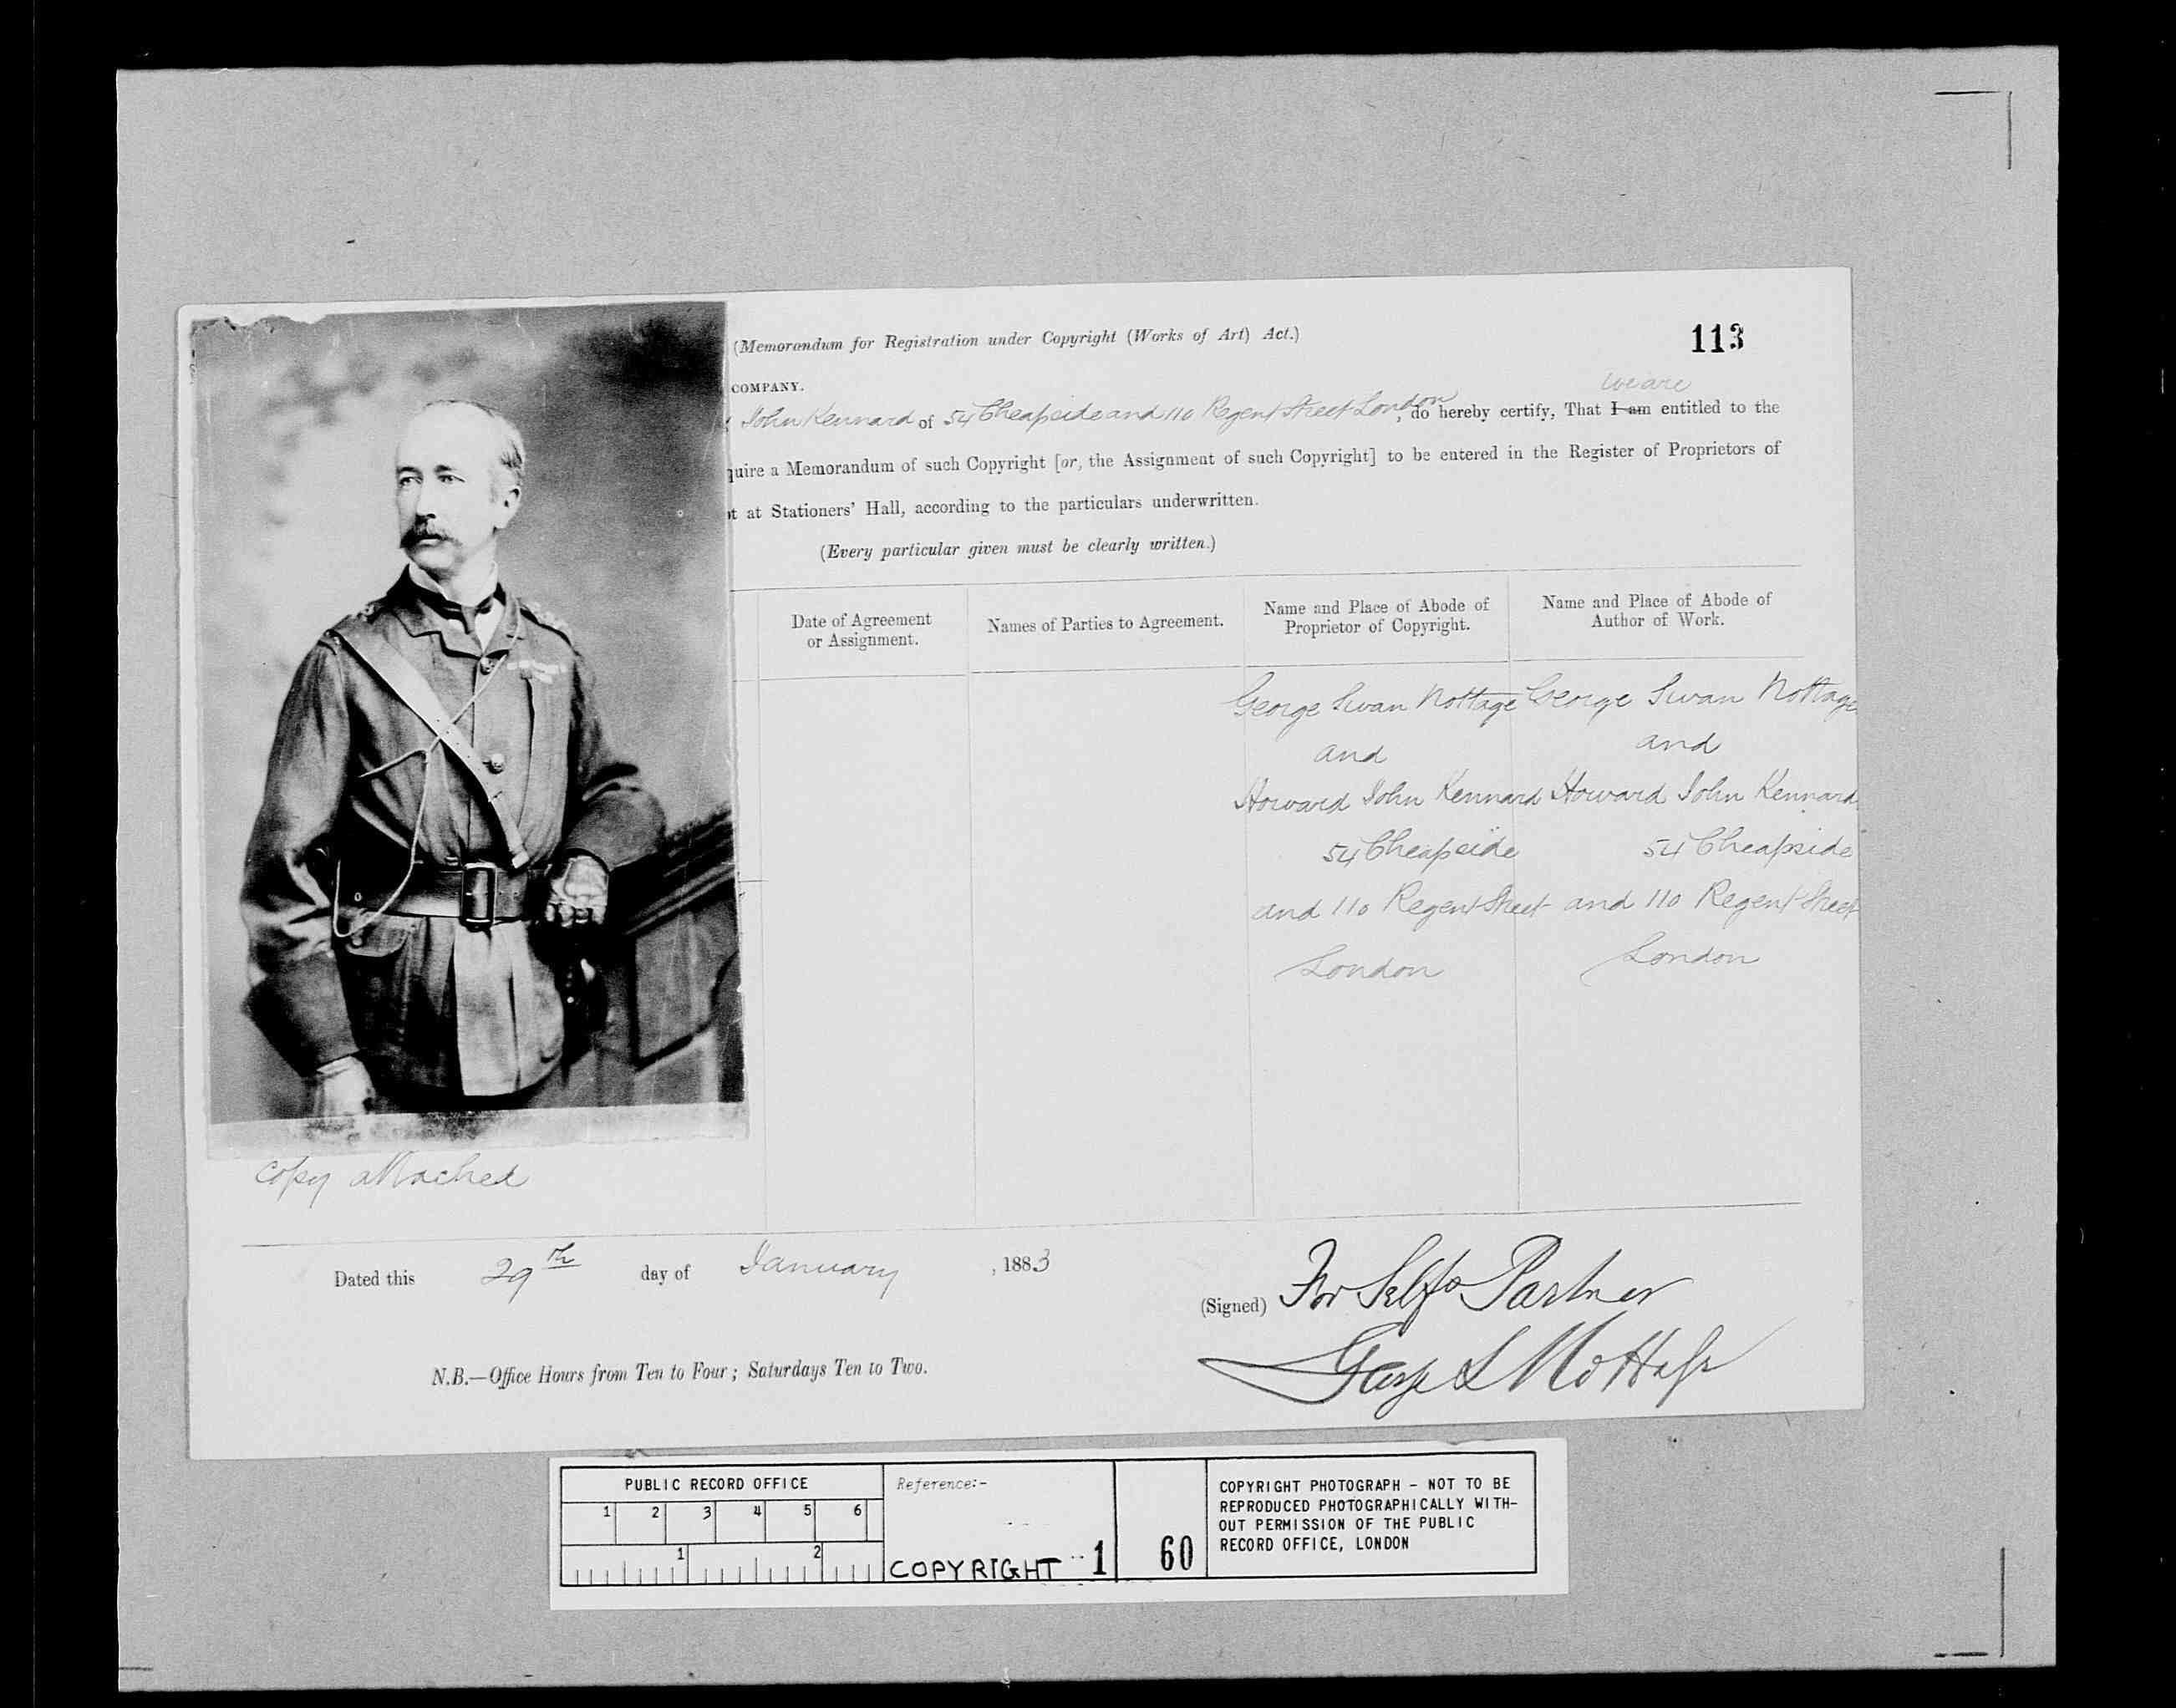 (Memorandum for Registration under Copyright (Works of Art) Act.)
113
COMPANY.
we are
John Kennard of 54 Cheapside and 110 Regent Street London, do hereby certify, That I am entitled to the
quire a Memorandum of such Copyright [or, the Assignment of such Copyright] to be entered in the Register of Proprietors of
at Stationers' Hall, according to the particulars underwritten.
(Every particular given must be clearly written.)
Date of Agreement
or Assignment.
Names of Parties to Agreement.
Name and Place of Abode of
Proprietor of Copyright.
Name and Place of Abode of
Author of Work.
George Swan Nottage
and
Howard John Kennard
54 Cheapside
and 110 Regent Street
London
George Swan Nottage
and
Howard John Kennard
54 Cheapside
and 110 Regent Street
London
Copy attached
Dated this 29th day of January, 1883
(Signed) For Self & Partner
George S Nottage
N.B.—Office Hours from Ten to Four; Saturdays Ten to Two.
PUBLIC RECORD OFFICE
1 2 3 4 5 6
1 2
Reference:-
COPYRIGHT 1
60
COPYRIGHT PHOTOGRAPH - NOT TO BE
REPRODUCED PHOTOGRAPHICALLY WITH-
OUT PERMISSION OF THE PUBLIC
RECORD OFFICE, LONDON